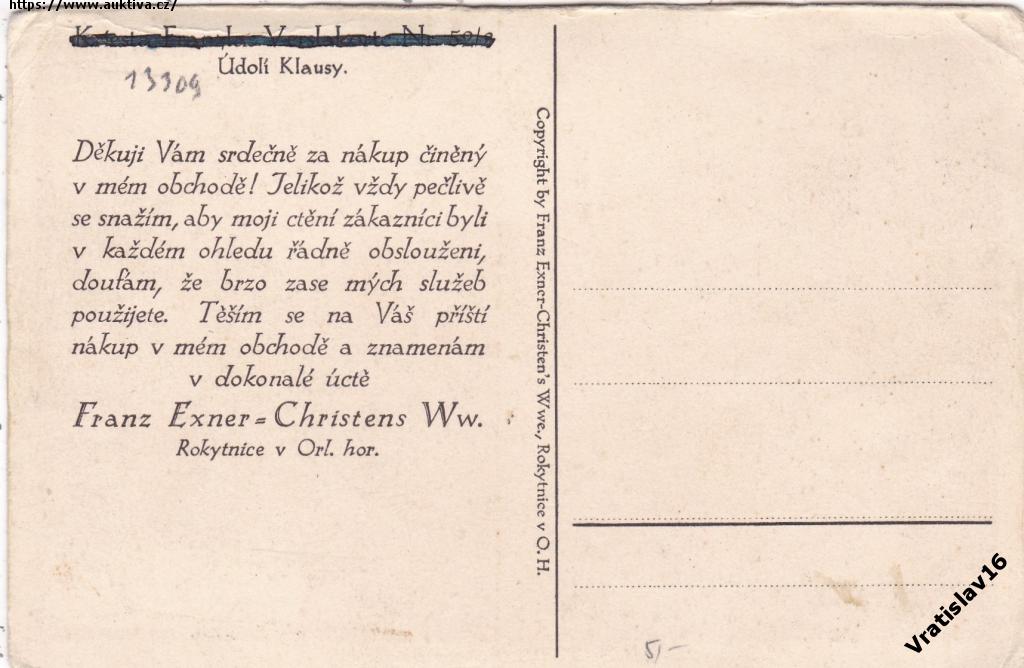 https://www.auktiva.cz/
Nr. 52/8
Údolí Klausy.
13309
Děkuji Vám srdečně za nákup činěný
v mém obchodě! Jelikož vždy pečlivě
se snažím, aby moji ctění zákazníci byli
v každém ohledu řádně obslouženi,
doufám, že brzo zase mých služeb
použijete. Těším se na Váš příští
nákup v mém obchodě a znamenám
v dokonalé úctě
Franz Exner=Christens Ww.
Rokytnice v Orl. hor.
Copyright by Franz Exner-Christen's Wwe., Rokytnice v O. H.
5,-
Vratislav16